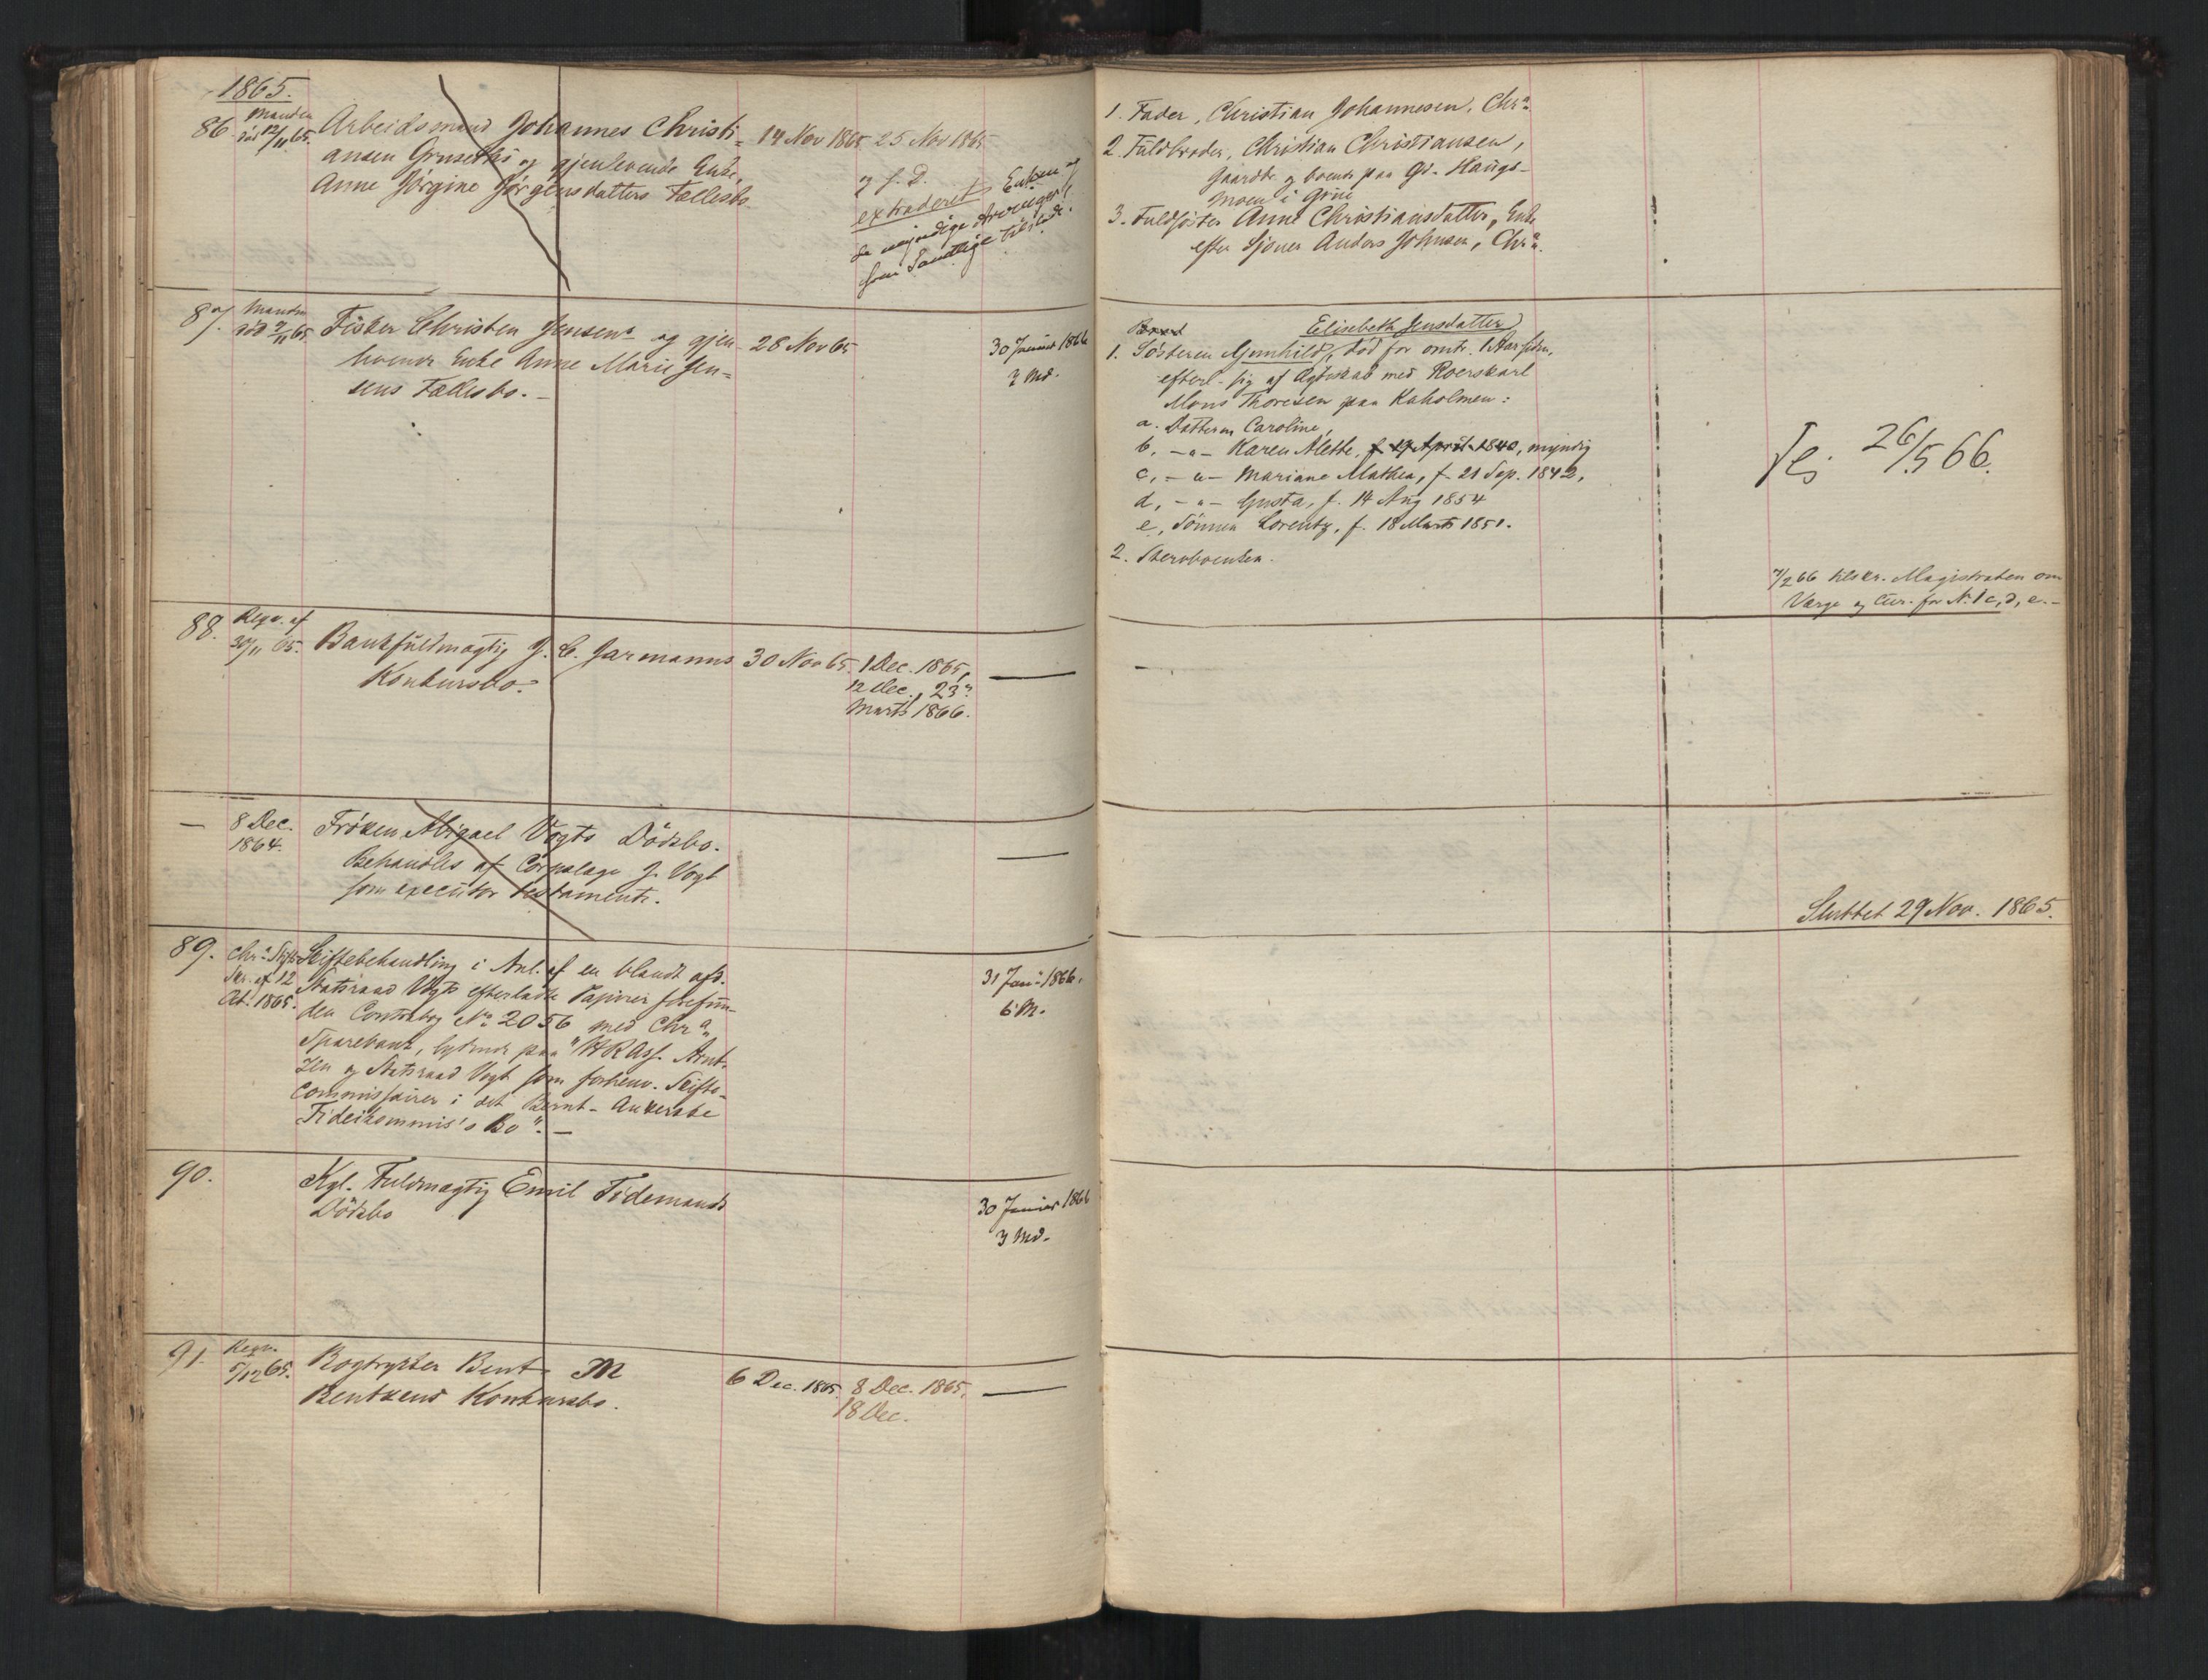 1865.
86. Manden
død 12/11 65.
Arbeidsmand Johannes Christi=
ansen Gruseths og gjenlevende Enke,
Anne Jørgine Jørgensdatters Fællesbo.
14 Nov 1865 25 Nov 1865
og s. D.
extraderet Enken og
de myndige Arvinger
som samtlige tilstede.
1. Fader, Christian Johannesen, Chr.a
2. Fuldbroder, Christian Christiansen,
Gaardbr. og boende paa Gd. Haugs-
moen i Grue
3. Fuldsøster Anne Christiansdatter, Enke
efter Sjøner Anders Johnsen, Chr.a
87. Manden
død 9/11 65.
Fisker Christen Jensens og gjen-
levende Enke Anne Marie Jen=
sens Fællesbo.
28 Nov 65
30 Januar 1866
3 Md.
Elisebeth Jensdatter
1. Søsteren Gunhild, død for omtr. 1 Aar siden,
efterl. sig af Ægteskab med Roerskarl
Mons Thoresen paa Kaholmen:
a. Datteren Caroline,
b, -"- Karen Alethe, f 17 April 1840, myndig
c, -"- Mariane Mathea, f. 21 Sep. 1842,
d, -"- Gusta, f. 14 Aug 1854
e, Sønnen Lorentz, f. 18 Marts 1851.
2. Stervboenken.
26/5 66.
7/2 66 tilskr. Magistraten om
Værge og Cur. for N. 1 c, d, e.
88. Reqv. af
30/11 65.
Bankfuldmægtig J. C. Garmanns
Konkursbo.
30 Nov 65. 1 Dec. 1865,
12 Dec., 23.
Marts 1866.
8 Dec.
1864.
Frøken Abigael Vogts Dødsbo.
Behandles af Corpslæge J. Vogt
som executor testamenti.
Sluttet 29 Nov. 1865.
89. Chr.a Stifts
Skr. af 12
Oct. 1865.
Skiftebehandling i Anl. af en blandt afd.
Statsraad Vogts efterladte Papirer forefun-
den Contrabog No. 2056 med Chr.a
Sparebank, lydende paa "HRAss. Arnt-
zen og Statsraad Vogt som forhenv. Skifte-
commissairer i det Bernt-Ankerske
Fideikommis's Bo".
31 Jan. 1866.
6 M.
90.
Kgl. Fuldmægtig Emil Tidemands
Dødsbo
30 Januar 1866
3 Md.
91. Reqv.
5/12 65.
Bogtrykker Bent M
Bentzens Konkursbo.
6 Dec. 1865. 8 Dec. 1865.
18 Dec.